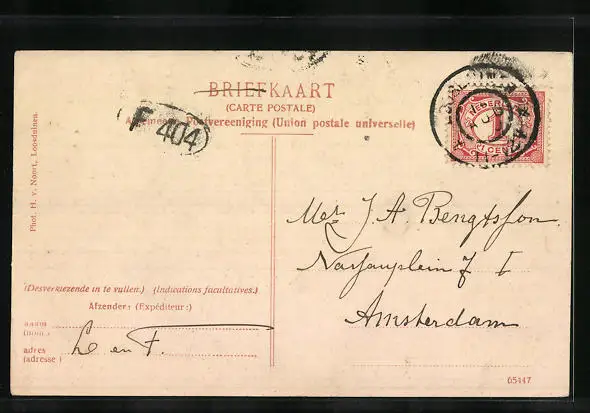 BRIEFKAART
(CARTE POSTALE)
Algemeene Postvereeniging (Union postale universelle)
F 404
NEDERLAND
1
1 CENT
Phot. H. v. Noort, Loosduinen.
J. A. Bengtsson.
I
Amsterdam
(Desverkiezende in te vullen.) (Indications facultatives.)
Afzender: (Expéditeur:)
naam
(nom:)
L en F.
adres
(adresse)
65447